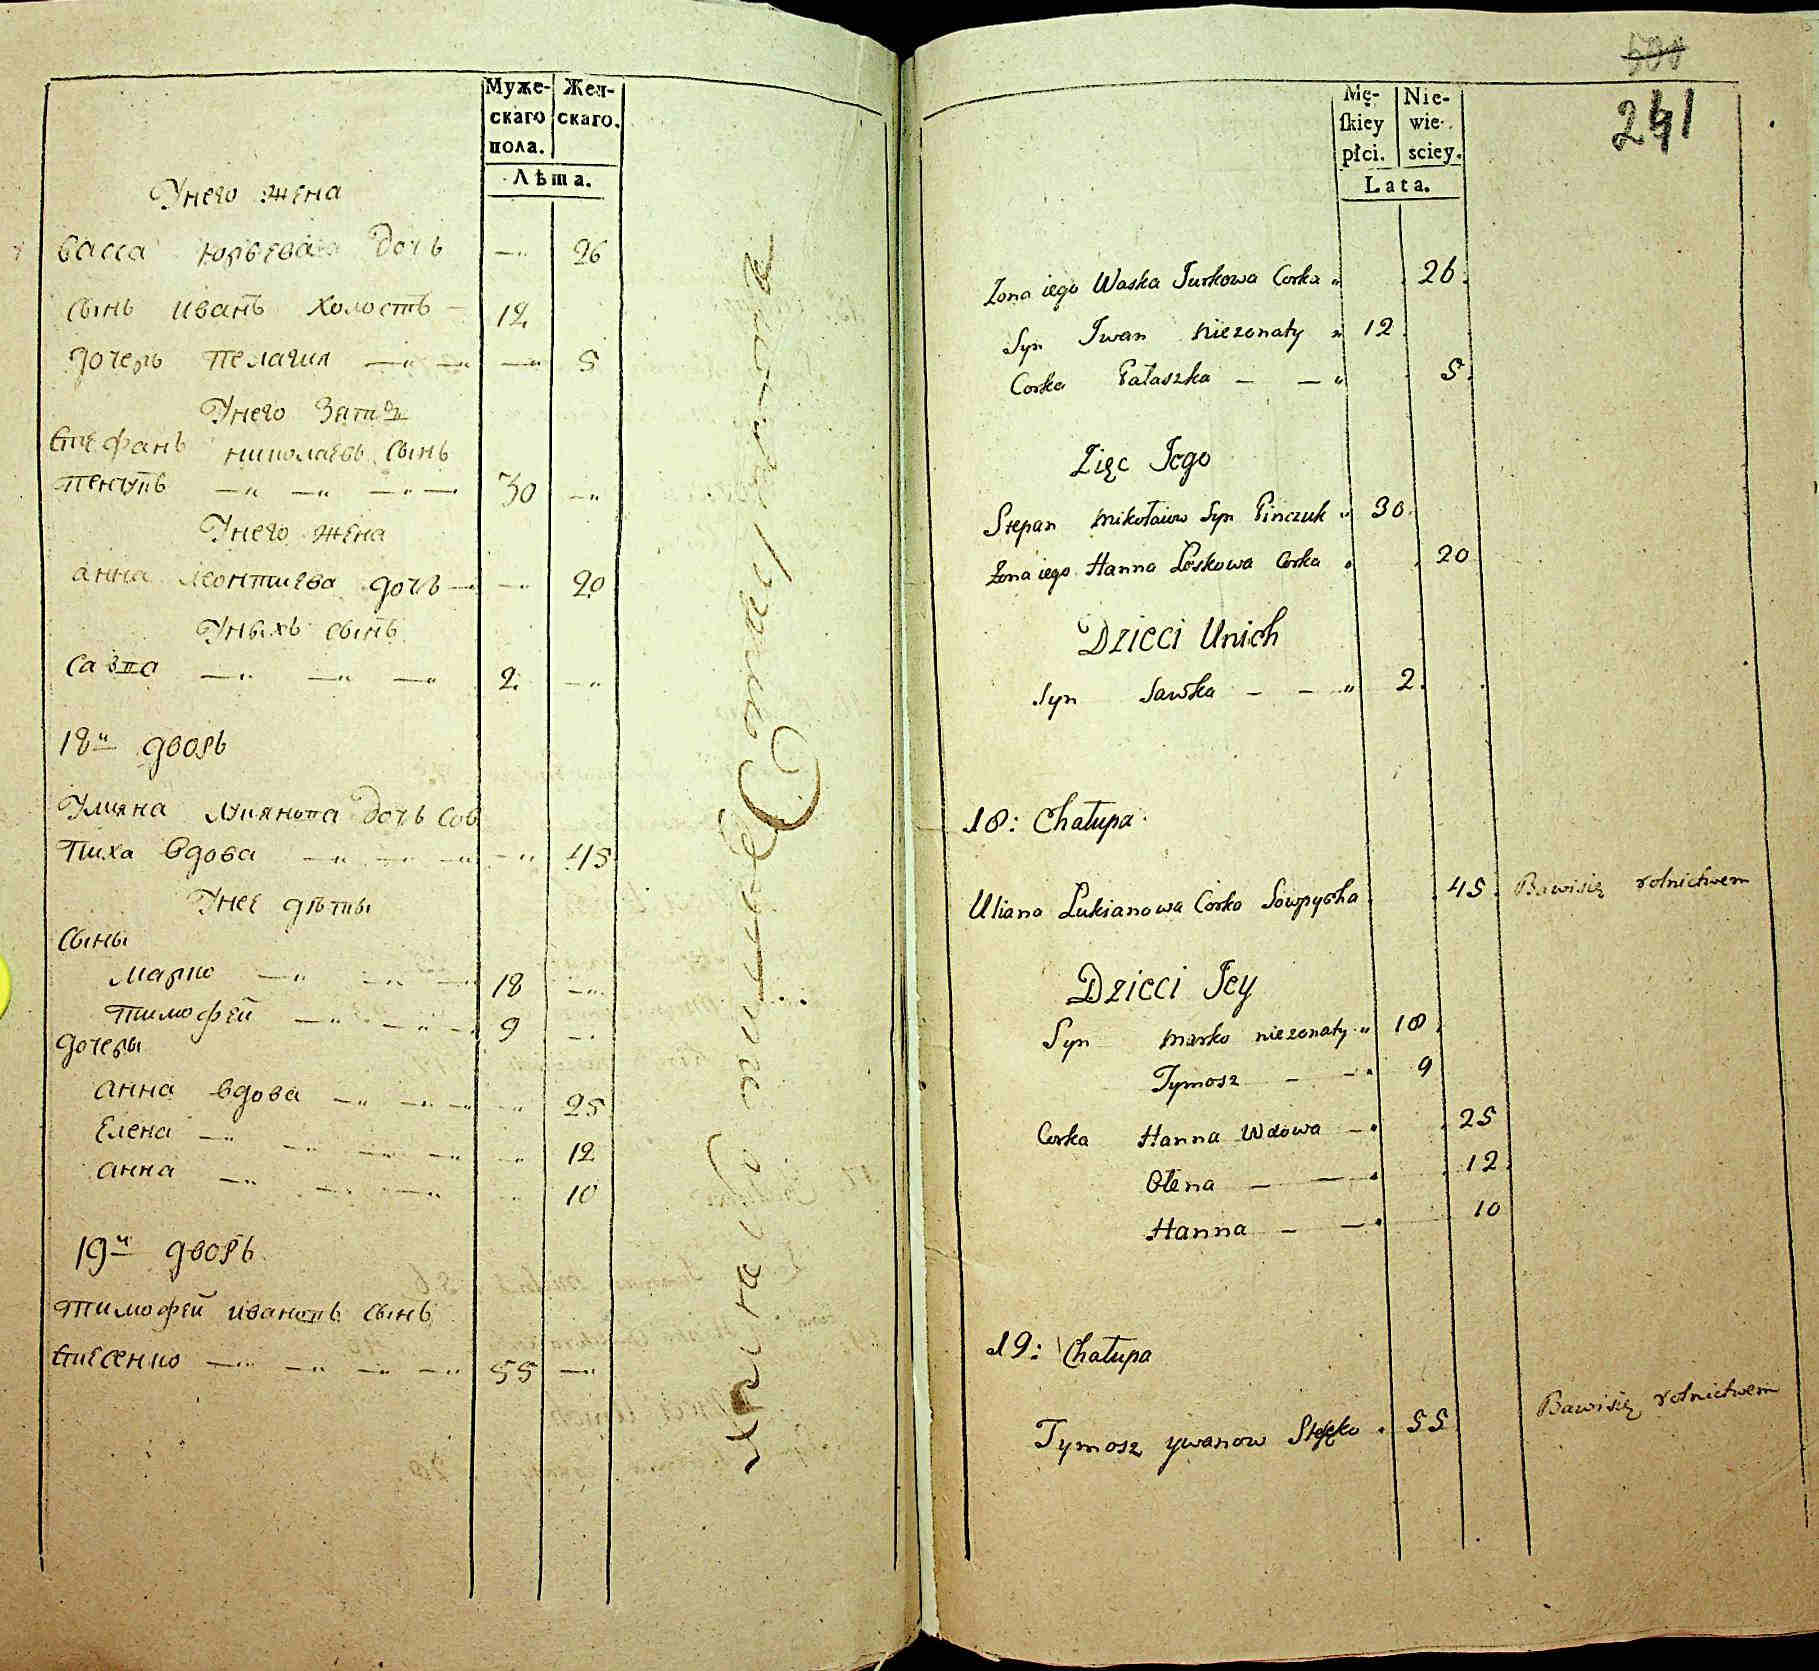 Муже-
скаго
пола.
Жен-
скаго.
Лѣта.
Унего жена
Васса Юрьева дочь —„ 26
Сынъ иванъ холостъ — 12
Дочерь Пелагия —„ —„ —„ 5
Унего Зять
Стефанъ николаевъ Сынъ
Пенчукъ —„ —„ —„ — 30 —„
Унего жена
анна леонтиева дочь — —„ 20
Уныхъ сынъ
Савка —„ —„ —„ 2 —„
18й дворъ
Улияна лукянова дочь Сов
пиха вдова —„ —„ —„ —„ 45
Унее дѣты
Сыны
Марко —„ —„ —„ 18 —„
Тимофей —„ —„ —„ 9 —„
Дочеры
анна вдова —„ —„ —„ —„ 25
Елена —„ —„ —„ —„ —„ 12
анна —„ —„ —„ —„ 10
19й дворъ
Тимофей ивановъ сынъ
Стесенко —„ —„ —„ —„ 55 —„
Mę-
ſkiey
płci.
Nie-
wie-
sciey.
Lata.
500
241
Zona iego Waska Jurkowa Corka „ 26.
Syn Iwan niezonaty „ 12.
Corka Pałaszka — —„ 5.
Zięc Jego
Stepan Mikołaiow Syn Pinczuk „ 30.
Zona iego Hanna Leskowa Corka „ 20
Dzieci Unich
Syn Sawka — — „ 2.
18: Chałupa.
Uliana Lukianowa Corka Sowpycha 45. Bawisię rolnictwem
Dzieci Jey
Syn Marko niezonaty „ 18.
Tymosz — —„ 9
Corka Hanna Wdowa —„ 25
Ołena — —„ 12.
Hanna — —„ 10
19: Chałupa
Tymosz ywanow Stesęko . 55. Bawisię rolnictwem